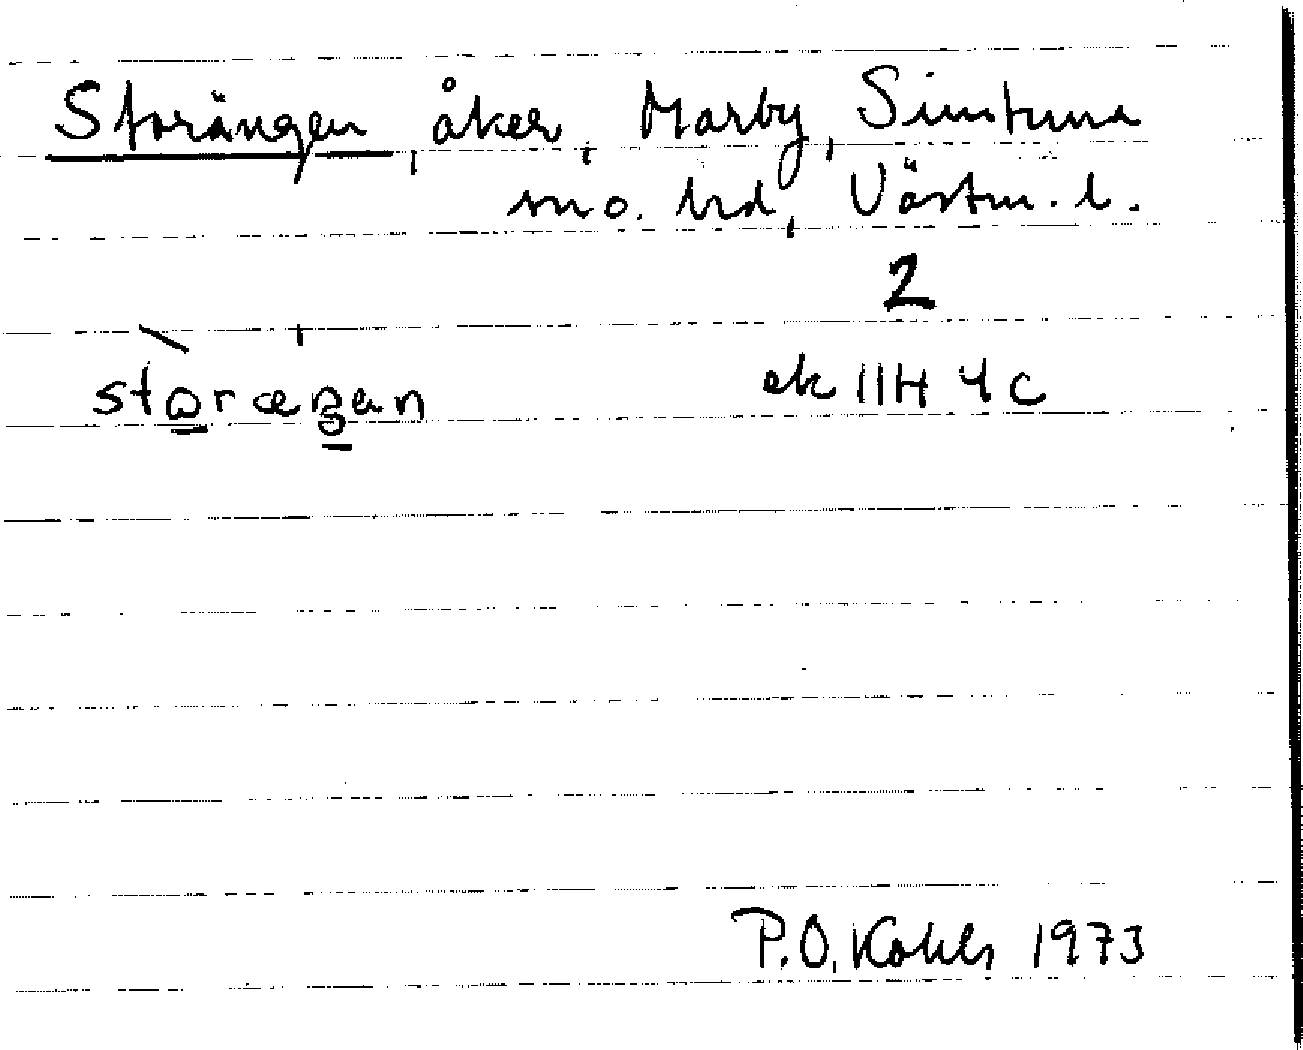 Storängen, åker, Marby, Simtuna
sn o. hd, Västm. l.
2
ek 11H 4c
P.O. Kohls 1973